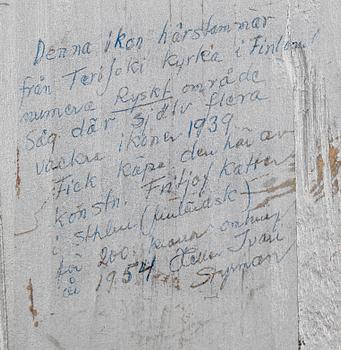 Denna ikon härstammar
från Terijoki Kyrka i Finland
numera Ryskt område
Såg där själv flera
vackra ikoner 1939
Fick köpa den här av
Konstn. Fritjof
i sthlm (finländsk)
för 200 kronor omkring
år 1954 Ivan
Styrman